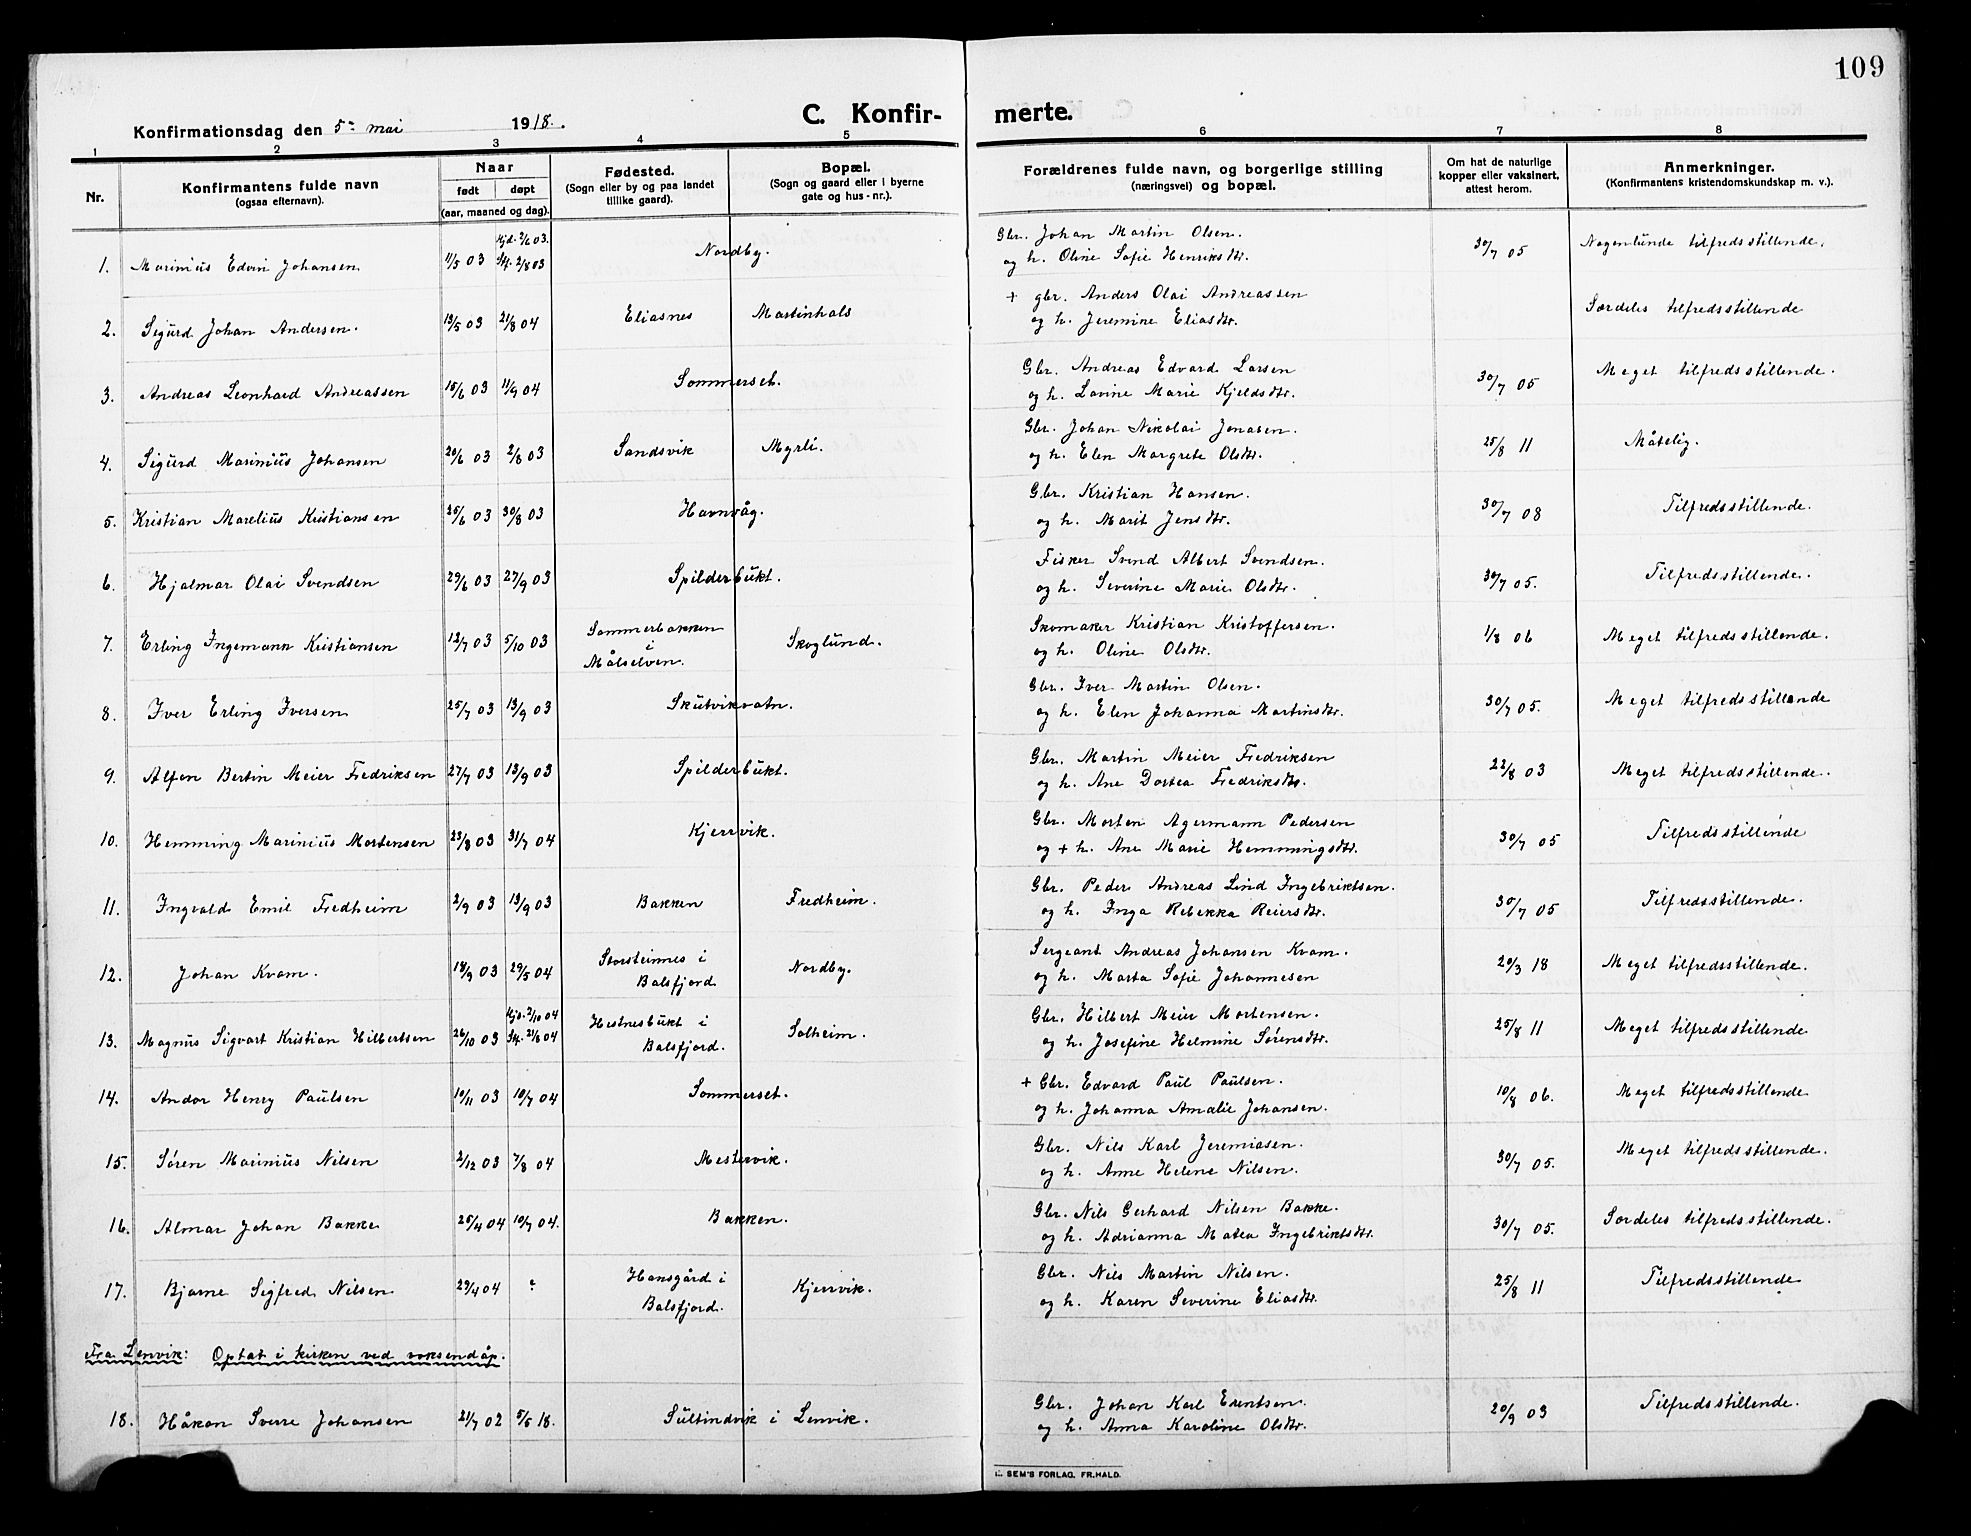 109
Konfirmationsdag den 5te mai 1918.
C. Konfir-
merte.
1 2 3 4 5 6 7 8
Nr.
Konfirmantens fulde navn
(ogsaa efternavn).
Naar
født døpt
(aar, maaned og dag).
Fødested.
(Sogn eller by og paa landet
tillike gaard).
Bopæl.
(Sogn og gaard eller i byerne
gate og hus-nr.).
Forældrenes fulde navn, og borgerlige stilling
(næringsvei) og bopæl.
Om hat de naturlige
kopper eller vaksinert,
attest herom.
Anmerkninger.
(Konfirmantens kristendomskundskap m. v.).
Hjd. 2/6 03. Nordby. Gbr. Johan Martin Olsen. Nogenlunde tilfredsstillende.
1. Marinius Edvin Johansen 11/5 03 Stf. 2/8 03 og h. Oline Sofie Henriksdtr. 30/7 05
Eliasnes Martinhals + gbr. Anders Olai Andreassen Særdeles tilfredsstillende
2. Sigurd Johan Andersen. 13/5 03 21/8 04 og h. Jeremine Eliasdtr.
Sommerset. Gbr. Andreas Edvard Larsen Meget tilfredsstillende.
3. Andreas Leonhard Andreassen 15/6 03 11/9 04 og h. Lovine Marie Kjeldsdtr. 30/7 05
Sandsvik Myrli. Gbr. Johan Nikolai Jonasen. Måtelig.
4. Sigurd Marinius Johansen 20/6 03 2/8 03 og h. Elen Margrete Olsdtr. 25/8 11
Havnvåg. Gbr. Kristian Hansen. Tilfredsstillende.
5. Kristian Marelius Kristiansen 25/6 03 30/8 03 og h. Marit Jensdtr. 30/7 08
Spilderbukt. Fisker Svend Albert Svendsen. Tilfredsstillende.
6. Hjalmar Olai Svendsen 29/6 03 27/9 03 og h. Severine Marie Olsdtr. 30/7 05.
Sommerbakken i Målselven. Skoglund. Skomaker Kristian Kristoffersen. Meget tilfredsstillende.
7. Erling Ingemann Kristiansen 12/7 03 5/10 03 og h. Oline Olsdtr. 1/8 06
Skutvikvatn. Gbr. Iver Martin Olsen. Meget tilfredsstillende
8. Iver Erling Iversen 25/7 03 13/9 03 og h. Elen Johanna Martinsdtr. 30/7 05.
Spilderbukt. Gbr. Martin Meier Fredriksen 22/8 03
9. Alfon Bertin Meier Fredriksen 27/7 03 13/9 03 og h. Ane Dortea Fredriksdtr. Meget tilfredsstillende.
Kjerrvik. Gbr. Morten Agermann Pedersen Tilfredsstillende
10. Hemming Marinius Mortensen 23/8 03 31/7 04 og + h. Ane Marie Hemmingsdtr. 30/7 05
Bakken Fredheim. Gbr. Peder Andreas Lind Ingebriktsen. Tilfredsstillende.
11. Ingvald Emil Fredheim 2/9 03 13/9 03 og h. Inga Rebekka Reiersdtr. 30/7 05
Storsteinnes i Balsfjord Nordby. Sergeant Andreas Johansen Kvam. Meget tilfredsstillende.
12. Johan Kvam. 18/9 03 29/5 04 og h. Marta Sofie Johannesen 20/3 18
Hjd. 2/10 04 Hestnesbukt i Balsfjord. Solheim. Gbr. Hilbert Meier Mortensen. Meget tilfredsstillende
13. Magnus Sigvart Kristian Hilbertsen 26/10 03 Stf. 21/8 04 og h. Josefine Helmine Sørensdtr. 25/8 11
Sommerset. + Gbr. Edvard Paul Paulsen. Meget tilfredsstillende
14. Andor Henry Paulsen 10/11 03 10/7 04 og h. Johanna Amalie Johansen. 10/8 06.
Mestervik. Gbr. Nils Karl Jeremiasen. Meget tilfredsstillende.
15. Søren Marinius Nilsen 2/12 03 7/8 04 og h. Anne Helene Nilsen. 30/7 05.
Bakken. Gbr. Nils Gerhard Nilsen Bakke. Særdeles tilfredsstillende.
16. Almar Johan Bakke 25/4 04 10/7 04. og h. Adrianna Matea Ingebriktsdtr. 30/7 05.
Hansgård i Balsfjord. Kjerrvik. Gbr. Nils Martin Nilsen. Tilfredsstillende
17. Bjarne Sigfred Nilsen 29/4 04 ? og h. Karen Severine Eliasdtr. 25/8 11
Fra Lenvik: Optat i kirken ved voksendåp.
Gbr. Johan Karl Erntsen Tilfredsstillende.
18. Håkon Sverre Johansen 21/7 02 5/5 18. Sultindvik i Lenvik. og h. Anna Karoline Olsdtr. 20/9 03
SEM'S FORLAG, FR.HALD.